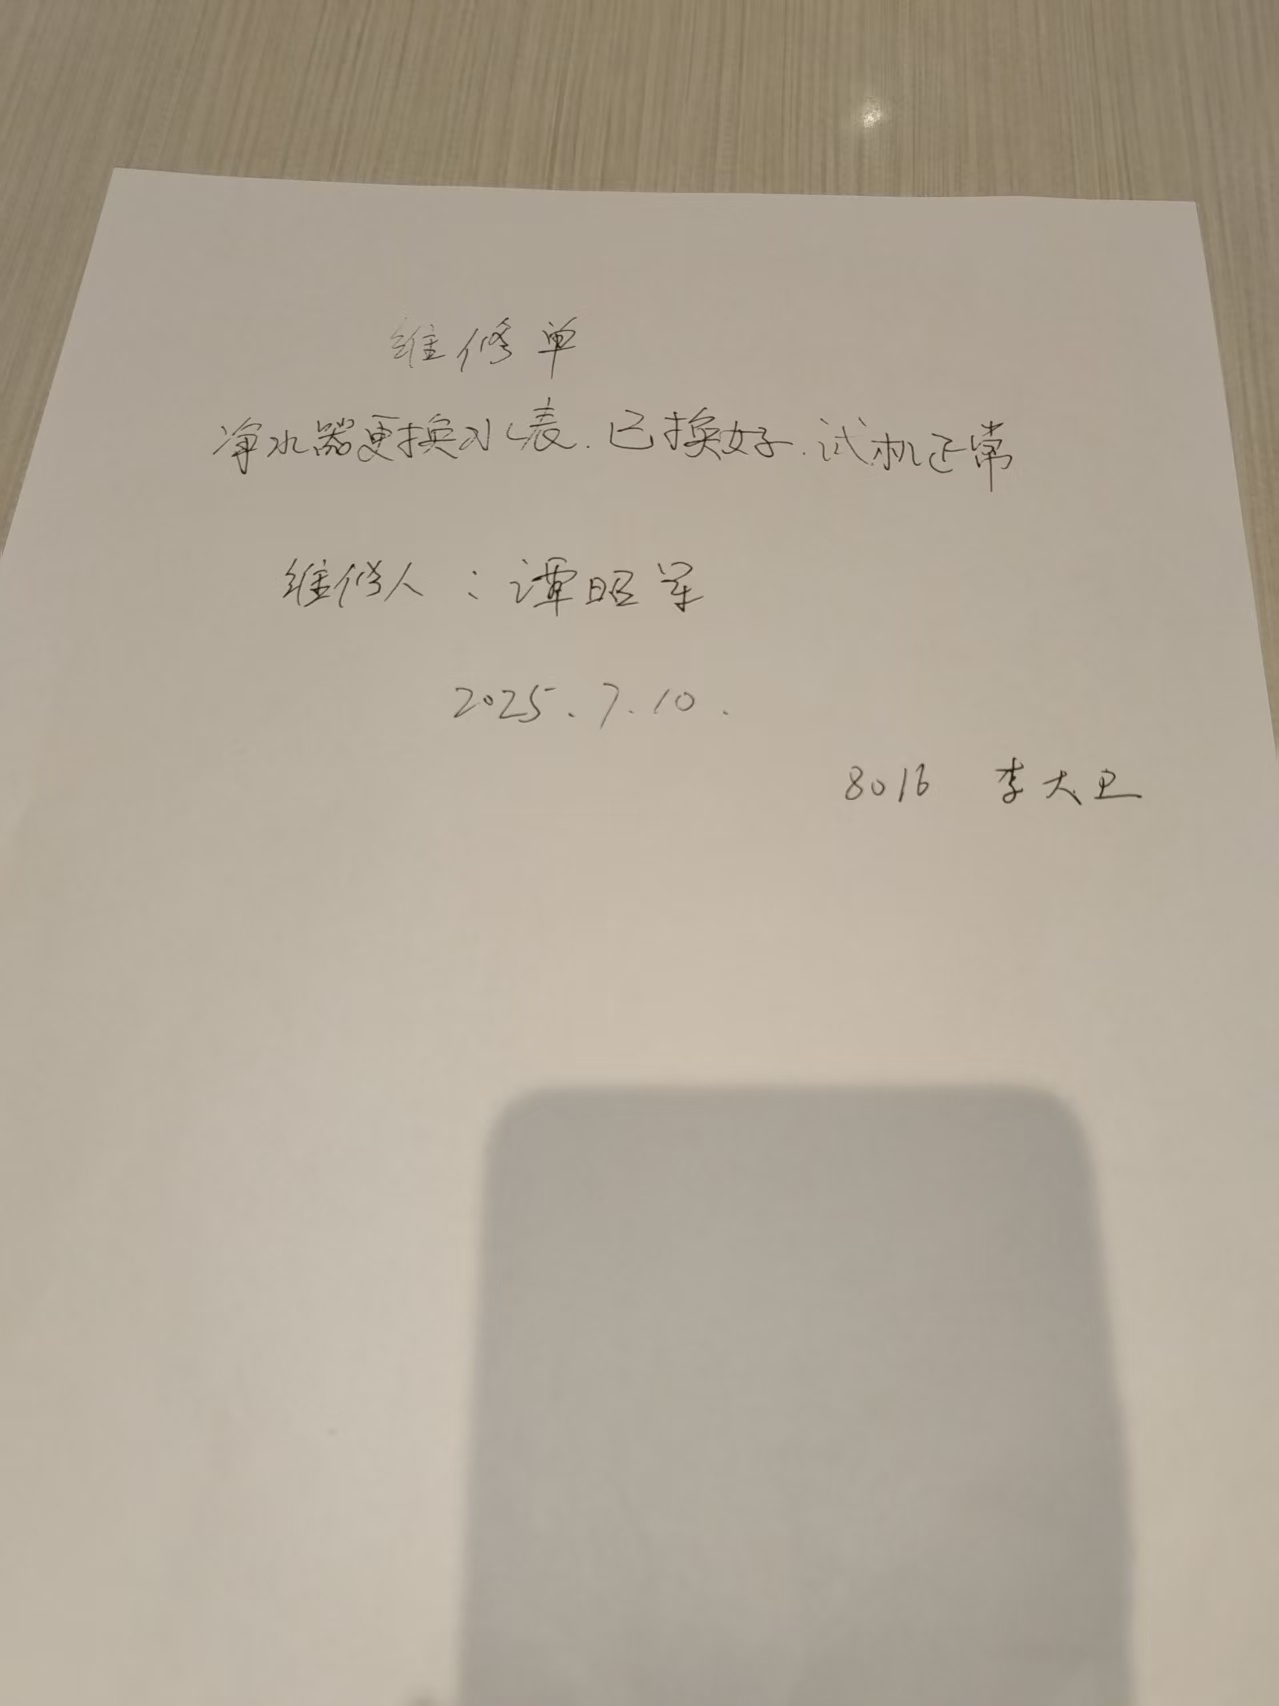 维修单
净水器更换水表.已换好.试机正常
维修人：谭昭军
2025.7.10.
8016 李大卫